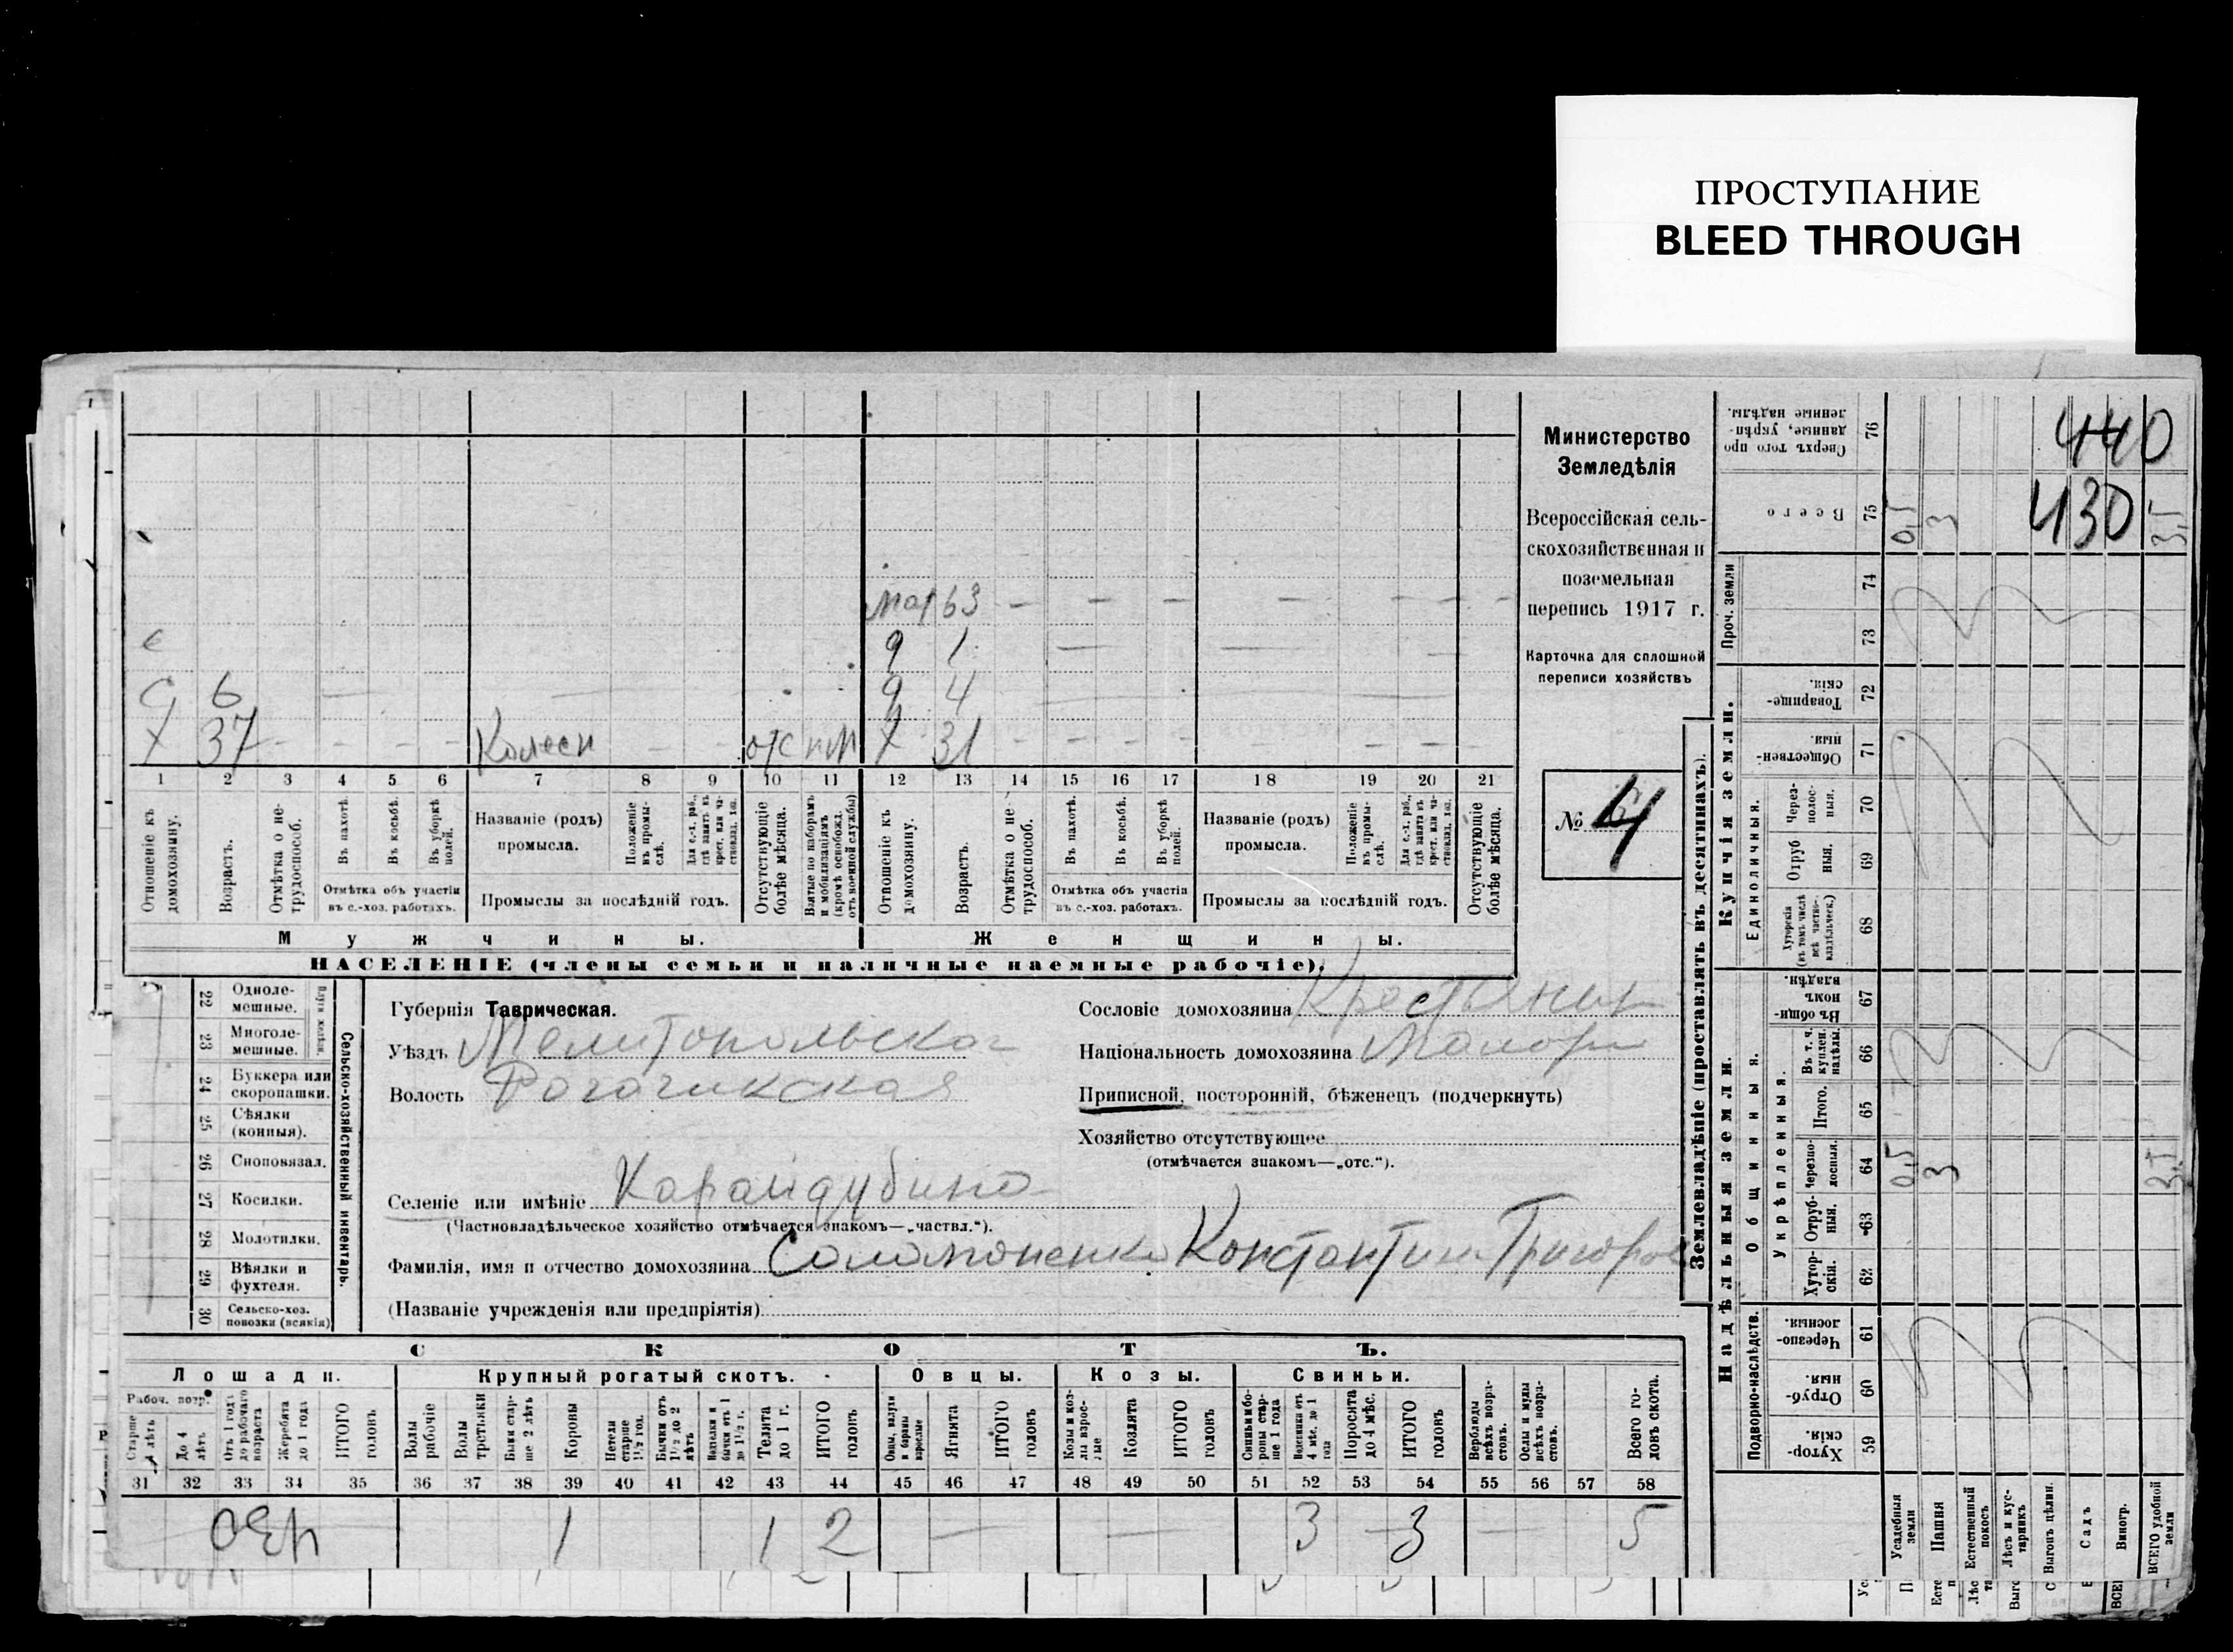 ПРОСТУПАНИЕ
BLEED THROUGH
Министерство
Земледѣлія
Всероссійская сель-
скохозяйственная и
поземельная
перепись 1917 г.
Карточка для сплошной
переписи хозяйствъ
№ 4
мат 63 — — — — — — —
с
9 1 — — —
С 6 — — 9 4 — —
Х 37 — — — — Колесн — — отс Х 31 — — — — — — —
1 2 3 4 5 6 7 8 9 10 11 12 13 14 15 16 17 18 19 20 21
Отношеніе къ домохозяину.
Возрастъ.
Отмѣтка о не-трудоспособ.
Въ пахотѣ.
Въ косьбѣ.
Въ уборкѣ полей.
Отмѣтка объ участіи
въ с.-хоз. работахъ.
Названіе (родъ)
промысла.
Положеніе въ промы-слѣ.
Для с.-х. раб., гдѣ занятъ въ крест. или ча-стновлад. хоз.
Промыслы за послѣдній годъ.
Отсутствующіе болѣе мѣсяца.
Взятые по наборамъ и мобилизаціямъ (кромѣ освобожд. отъ военной службы)
Отношеніе къ домохозяину.
Возрастъ.
Отмѣтка о не-трудоспособ.
Въ пахотѣ.
Въ косьбѣ.
Въ уборкѣ полей.
Отмѣтка объ участіи
въ с.-хоз. работахъ.
Названіе (родъ)
промысла.
Положеніе въ промы-слѣ.
Для с.-х. раб., гдѣ занятъ въ крест. или ча-стновлад. хоз.
Промыслы за послѣдній годъ.
Отсутствующіе болѣе мѣсяца.
Мужчины. Женщины.
НАСЕЛЕНІЕ (члены семьи и наличные наемные рабочіе).
22 Одноле-мешные.
23 Многоле-мешные.
Плуги желѣзн.
24 Буккера или скоропашки.
25 Сѣялки (конныя).
26 Сноповязал.
27 Косилки.
28 Молотилки.
29 Вѣялки и фухтели.
30 Сельско-хоз. повозки (всякія)
Сельско-хозяйственный инвентарь.
Губернія Таврическая.
Уѣздъ Мелитопольска
Волость Рогачикская
Селеніе или имѣніе Карайдубино
(Частновладѣльческое хозяйство отмѣчается знакомъ—„частвл.“).
Фамилія, имя и отчество домохозяина Соломоненко Константин Григоров
(Названіе учрежденія или предпріятія)
Сословіе домохозяина Крестьянин
Національность домохозяина Малорос
Приписной, посторонній, бѣженецъ (подчеркнуть)
Хозяйство отсутствующее
(отмѣчается знакомъ—„отс.“).
СКОТЪ.
Лошади. Крупный рогатый скотъ. Овцы. Козы. Свиньи.
Рабоч. возр.
Старше 4 лѣтъ
До 4 лѣтъ
Отъ 1 года до рабочаго возраста
Жеребята до 1 года
ИТОГО головъ
Волы рабочіе
Волы третьяки
Быки стар-ше 2 лѣтъ
Коровы
Нетели старше 1½ год.
Бычки отъ 1½ до 2 лѣтъ
Нетелки и бычки отъ 1 до 1½ г.
Телята до 1 г.
ИТОГО головъ
Овцы, валухи и бараны взрослые
Ягнята
ИТОГО головъ
Козы и коз-лы взрос-лые
Козлята
ИТОГО головъ
Свиньи и бо-ровы стар-ше 1 года
Подсвинки отъ 4 мѣс. до 1 года
Поросята до 4 мѣс.
ИТОГО головъ
Верблюды всѣхъ возра-стовъ.
Ослы и мулы всѣхъ возра-стовъ.
Всего го-ловъ скота.
31 32 33 34 35 36 37 38 39 40 41 42 43 44 45 46 47 48 49 50 51 52 53 54 55 56 57 58
430 1 1 2 — — 3 — 3 — 5
Землевладѣніе (проставлять въ десятинахъ).
Надѣльныя земли. Купчія земли.
Подворно-наслѣдств.
Общинныя.
Укрѣпленныя.
Единоличныя.
Проч. земли
76 Сверхъ того про-данные, укрѣп-ленные надѣлы.
75 Всего
74
73
72 Товарище-скія.
71 Обществен-ныя.
70 Через-полос-ныя.
69 Отруб ныя.
68 Хуторскія (въ томъ числѣ всѣ частно-владѣльческ.)
67 Въ общи-номъ владѣн.
66 Въ т. ч. куплен. надѣлы.
65 Итого.
64 Черезпо-лосныя.
63 Отруб-ныя.
62 Хутор-скія.
61 Черезпо-лосныя.
60 Отруб-ныя.
59 Хутор-скія.
440
430
0,5 3 3,5
0,5 3 3,5
Усадебныя земли
Пашня
Естественный покосъ
Лѣсъ и кус-тарникъ
Выгонъ цѣлин.
Садъ
Виногр.
ВСЕГО удобной земли